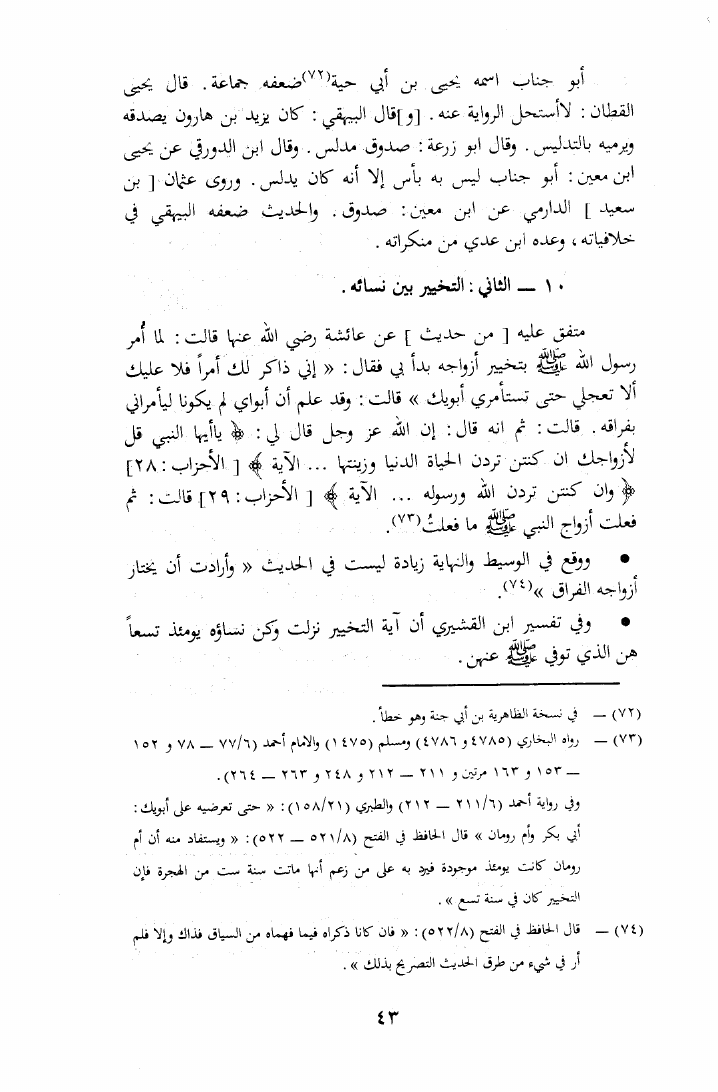 أبو جناب اسمه يحيى بن أبي حية(٧٢)ضعفه جماعة. قال يحيى
القطان: لاأستحل الرواية عنه. [و]قال البيهقي: كان يزيد بن هارون يصدقه
ويرميه بالتدليس. وقال ابو زرعة: صدوق مدلس. وقال ابن الدورقي عن يحيى
ابن معين: أبو جناب ليس به بأس إلا أنه كان يدلس. وروى عثمان [ بن
سعيد ] الدارمي عن ابن معين: صدوق. والحديث ضعفه البيهقي في
خلافياته، وعده ابن عدي من منكراته.
١٠ ــ الثاني: التخيير بين نسائه.
متفق عليه [ من حديث ] عن عائشة رضي الله عنها قالت: لما أُمر
رسول الله ﷺ بتخيير أزواجه بدأ بي فقال: « إني ذاكر لك أمراً فلا عليك
ألا تعجلي حتى تستأمري أبويك » قالت: وقد علم أن أبواي لم يكونا ليأمراني
بفراقه. قالت: ثم انه قال: إن الله عز وجل قال لي: ﴿ ياأيها النبي قل
لأزواجك ان كنتن تردن الحياة الدنيا وزينتها ... الآية ﴾ [ الأحزاب: ٢٨]
﴿ وان كنتن تردن الله ورسوله ... الآية ﴾ [ الأحزاب: ٢٩] قالت: ثم
فعلت أزواج النبي ﷺ ما فعلتُ(٧٣).
• ووقع في الوسيط والنهاية زيادة ليست في الحديث « وأرادت أن يختار
أزواجه الفراق »(٧٤).
• وفي تفسير ابن القشيري أن آية التخيير نزلت وكن نساؤه يومئذ تسعاً
هن الذي توفي ﷺ عنهن.
(٧٢) ــ في نسخة الظاهرية بن أبي جنة وهو خطأ.
(٧٣) ــ رواه البخاري (٤٧٨٥ و ٤٧٨٦) ومسلم (١٤٧٥) والامام أحمد (٧٧/٦ ــ ٧٨ و ١٥٢
ــ ١٥٣ و ١٦٣ مرتين و ٢١١ ــ ٢١٢ و ٢٤٨ و ٢٦٣ ــ ٢٦٤).
وفي رواية أحمد (٢١١/٦ ــ ٢١٢) والطبري (١٥٨/٢١): « حتى تعرضيه على أبويك:
أبي بكر وأم رومان » قال الحافظ في الفتح (٥٢١/٨ ــ ٥٢٢): « ويستفاد منه أن أم
رومان كانت يومئذ موجودة فيرد به على من زعم أنها ماتت سنة ست من الهجرة فإن
التخيير كان في سنة تسع ».
(٧٤) ــ قال الحافظ في الفتح (٥٢٢/٨): « فان كانا ذكراه فيما فهماه من السياق فذاك وإلا فلم
أر في شيء من طرق الحديث التصريح بذلك ».
٤٣